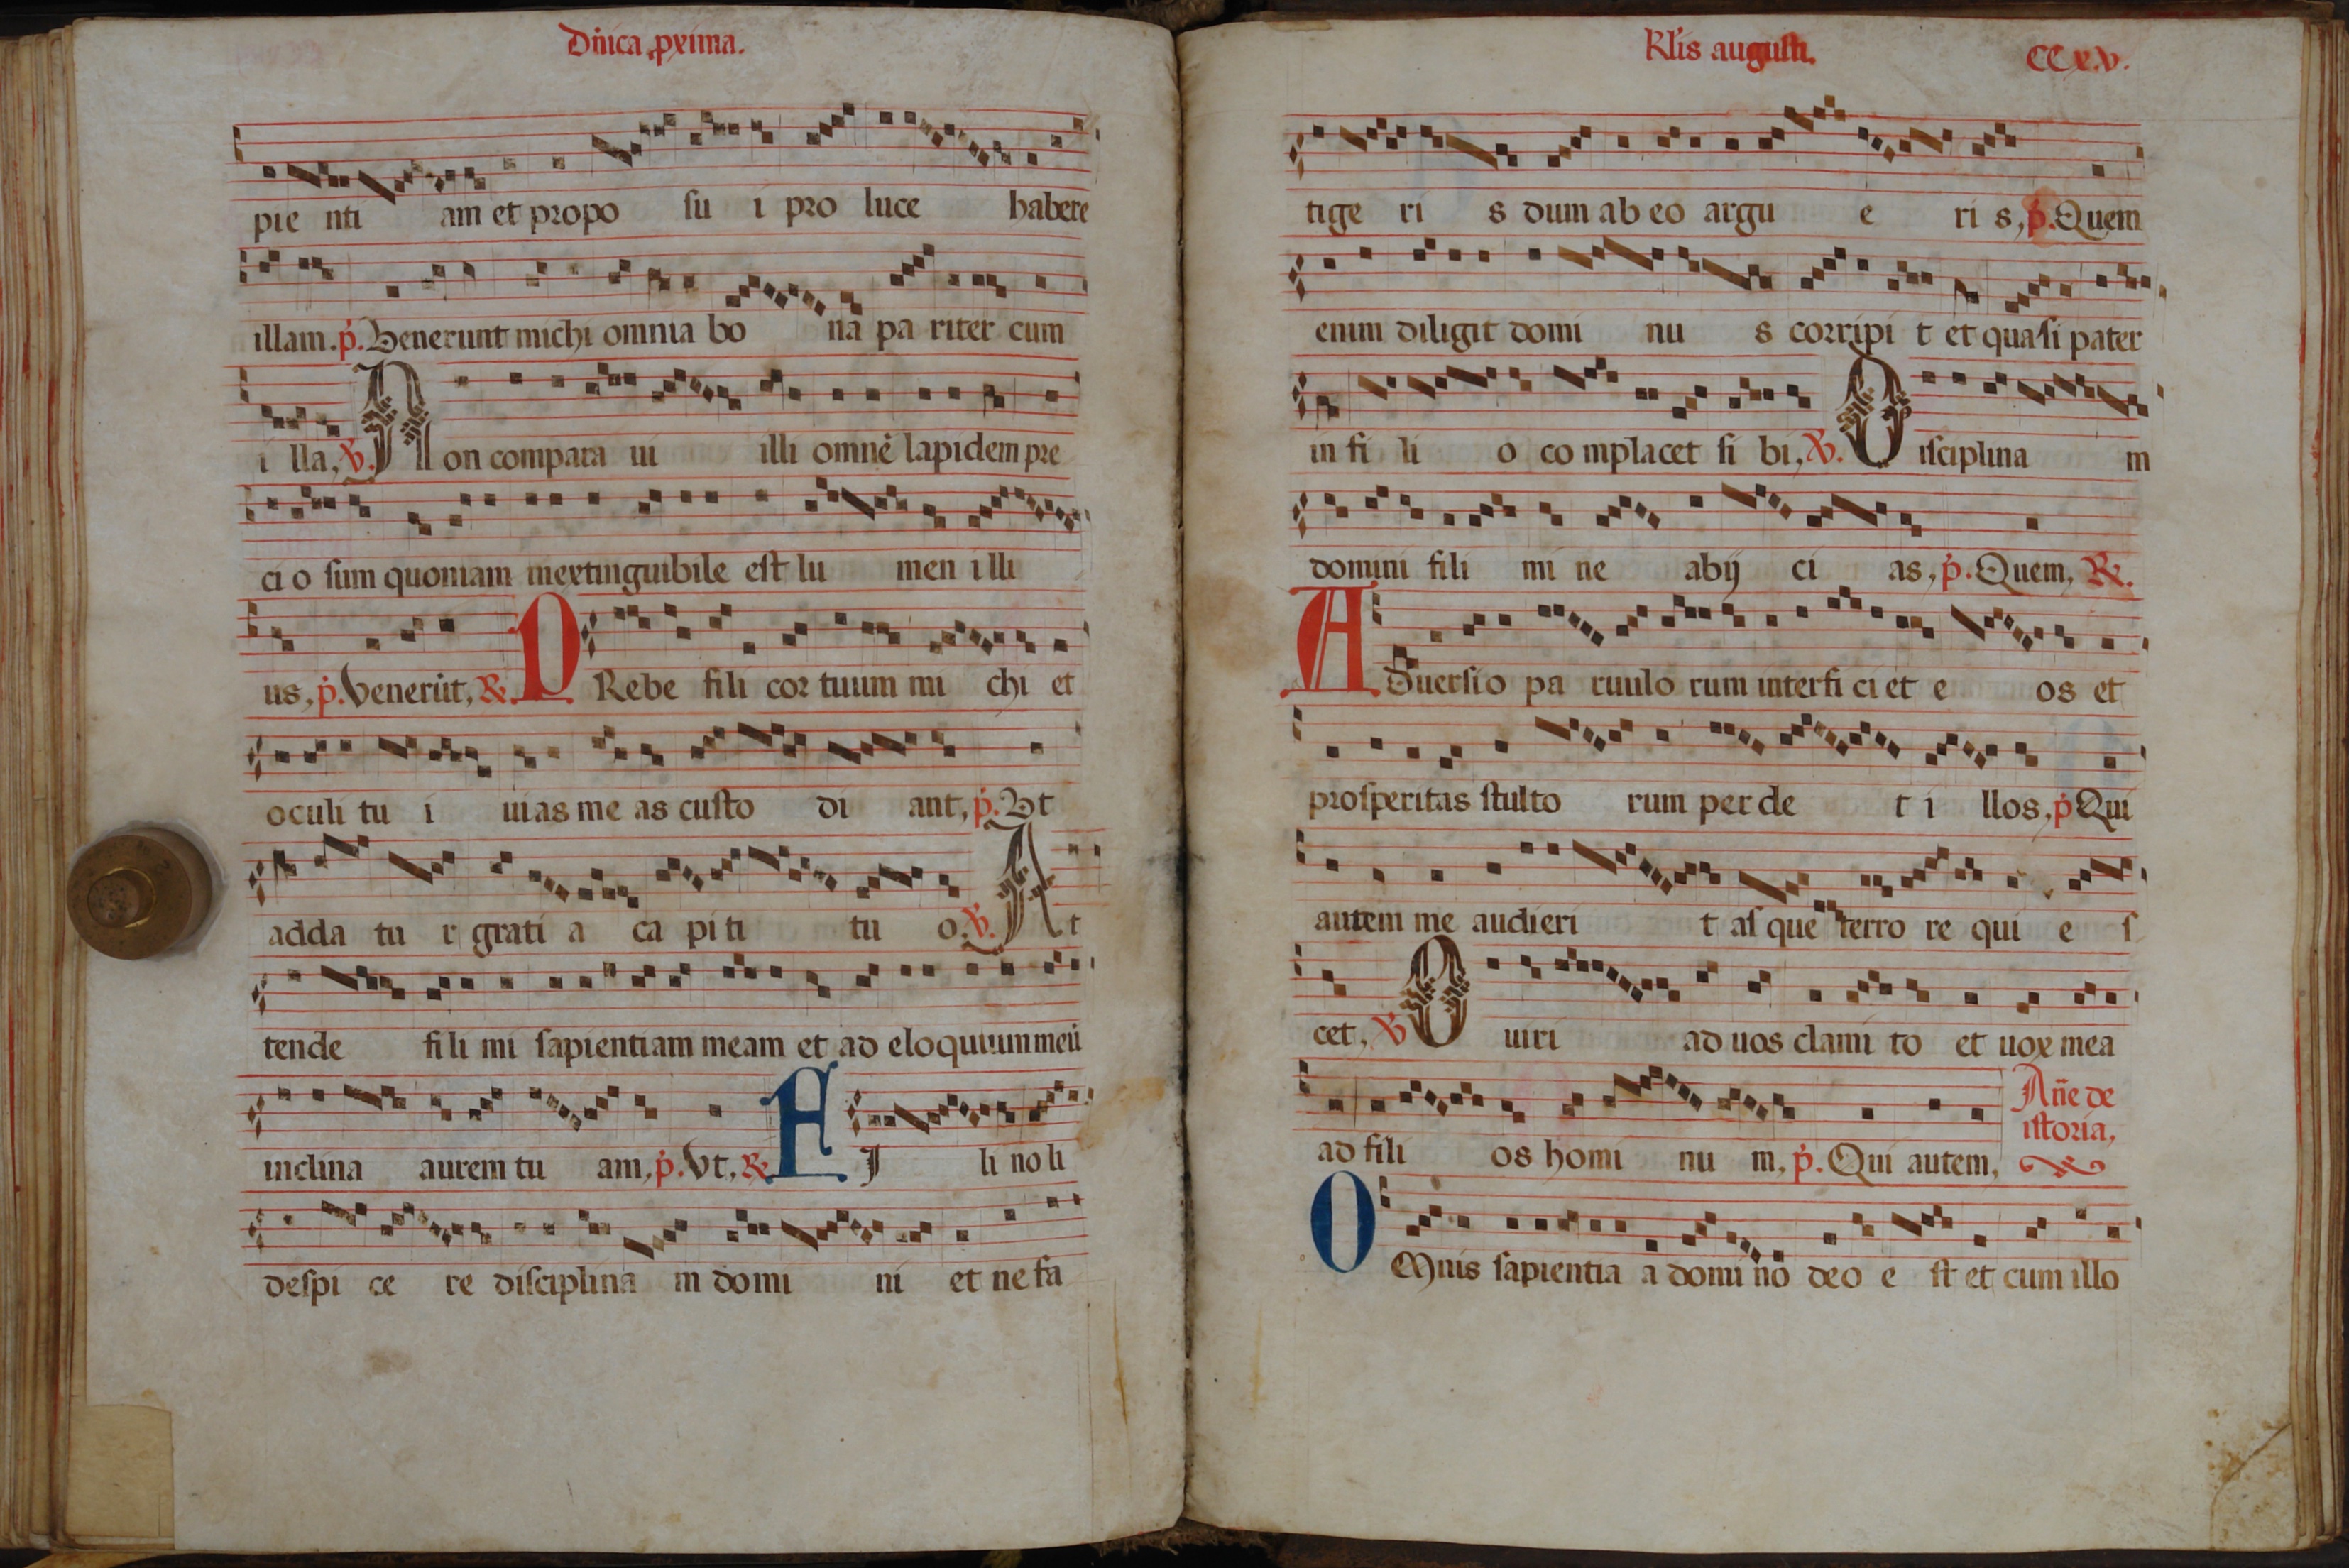 Dñica pxima.
pie nti am et propo su i pro luce habere
illam. p̉. Venerunt michi omnia bo na pa riter cum
i lla, V. Non compara ui illi omnē lapidem pre
ci o sum quoniam inextinguibile est lu men i lli
us, p̉. Venerūt, R. PRebe fili cor tuum mi chi et
oculi tu i uias me as custo di ant, p̉. Vt
adda tu r grati a ca pi ti tu o, V. At
tende fili mi sapientiam meam et ad eloquium meū
inclina aurem tu am, p̉. Vt, R. FI li no li
despi ce re disciplina m domi ni et ne fa
Klis augusti.
CCx.v.
tige ri s dum ab eo argu e ri s, p̉. Quem
enim diligit domi nu s corripi t et quasi pater
in fi li o co mplacet si bi, V. Disciplina m
domini fili mi ne abij ci as, p̉. Quem, R.
ADuersio pa ruulo rum interfi ci et e os et
prosperitas stulto rum perde t i llos, p̉ Qui
autem me audieri t asque terro re qui e s
cet, V O uiri ad uos clami to et uox mea
ad fili os homi nu m, p̉. Qui autem,
Añe de
istoria,
OMnis sapientia a domi no deo e st et cum illo